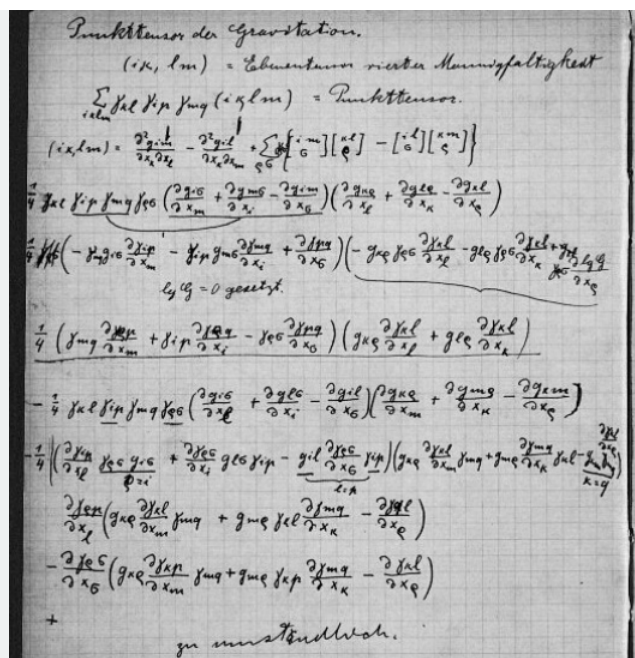 Punkttensor der Gravitation.
(iκ, lm) = Ebenentensor vierter Mannigfaltigkeit
∑_{iκlm} γ_{κl} γ_{ip} γ_{mq} (iκlm) = Punkttensor.
(iκ,lm) = ∂²g_{im}/∂x_κ∂x_l − ∂²g_{il}/∂x_κ∂x_m + ∑_{ρσ} γ_{ρσ} {[im σ][κl ρ] − [il σ][κm ρ]}
1/4 γ_{κl} γ_{ip} γ_{mq} γ_{ρσ} (∂g_{iσ}/∂x_m + ∂g_{mσ}/∂x_i − ∂g_{im}/∂x_σ)(∂g_{κρ}/∂x_l + ∂g_{lρ}/∂x_κ − ∂g_{κl}/∂x_ρ)
1/4 (− γ_{mq} g_{iσ} ∂γ_{ip}/∂x_m − γ_{ip} g_{mσ} ∂γ_{mq}/∂x_i + ∂γ_{pq}/∂x_σ)(− g_{κρ} γ_{ρσ} ∂γ_{κl}/∂x_l − g_{lρ} γ_{ρσ} ∂γ_{κl}/∂x_κ + γ_{ρσ} ∂lg G/∂x_ρ)
lg G = 0 gesetzt.
1/4 (γ_{mq} ∂γ_{ρp}/∂x_m + γ_{ip} ∂γ_{ρq}/∂x_i − γ_{ρσ} ∂γ_{pq}/∂x_σ)(g_{κρ} ∂γ_{κl}/∂x_l + g_{lρ} ∂γ_{κl}/∂x_κ)
− 1/4 γ_{κl} γ_{ip} γ_{mq} γ_{ρσ} (∂g_{iσ}/∂x_l + ∂g_{lσ}/∂x_i − ∂g_{il}/∂x_σ)(∂g_{κρ}/∂x_m + ∂g_{mρ}/∂x_κ − ∂g_{κm}/∂x_ρ)
− 1/4 (∂γ_{ip}/∂x_l γ_{ρσ} g_{iσ} + ∂γ_{ρσ}/∂x_i g_{lσ} γ_{ip} − g_{il} ∂γ_{ρσ}/∂x_σ γ_{ip})(g_{κρ} ∂γ_{κl}/∂x_m γ_{mq} + g_{mρ} ∂γ_{mq}/∂x_κ γ_{κl} −
ρ=i l=p κ=q
∂γ_{ρp}/∂x_l (g_{κρ} ∂γ_{κl}/∂x_m γ_{mq} + g_{mρ} γ_{κl} ∂γ_{mq}/∂x_κ − ∂γ_{ql}/∂x_ρ)
− ∂γ_{ρσ}/∂x_σ (g_{κρ} ∂γ_{κp}/∂x_m γ_{mq} + g_{mρ} γ_{κp} ∂γ_{mq}/∂x_κ − ∂γ_{κl}/∂x_ρ)
+
zu umständlich.